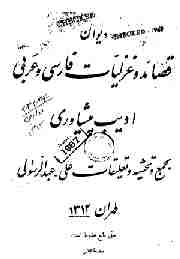 دیوان
قصائد و غزلیات فارسی و عربی
ادیب پیشاوری
بجمع و تحشیه و تعلیقات علی عبدالرسولی
طهران ۱۳۱۲
حق طبع محفوظ است